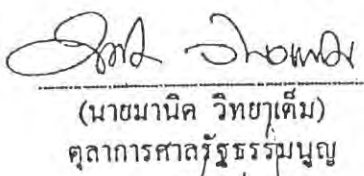 (นายมานิต วิทยาเต็ม)
ตุลาการศาลรัฐธรรมนูญ